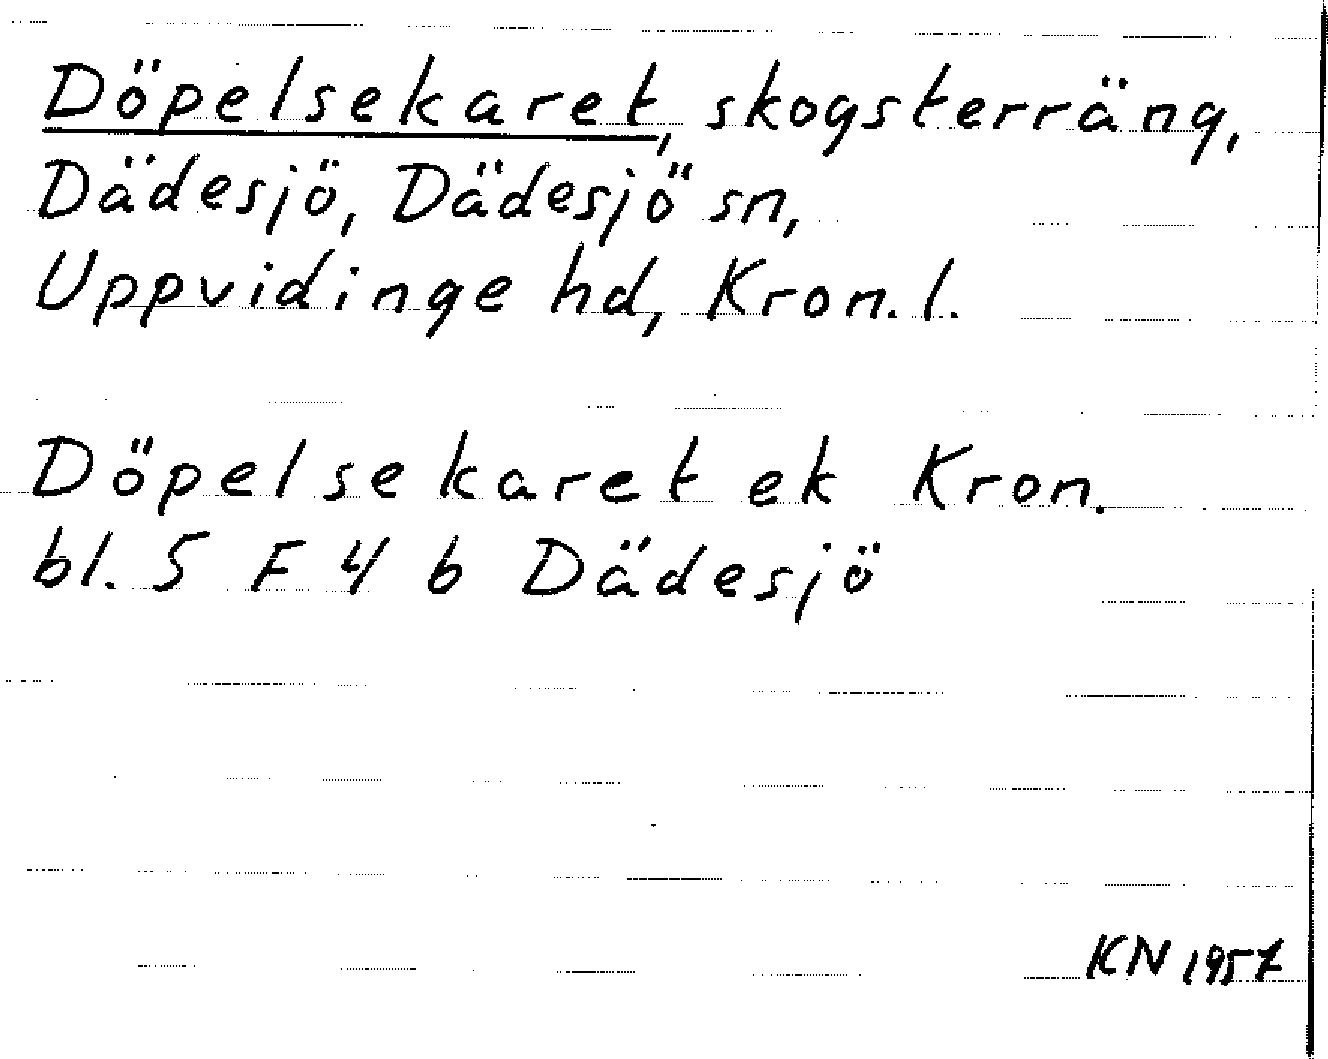 Döpelsekaret, skogsterräng,
Dädesjö, Dädesjö sn,
Uppvidinge hd, Kron. l.
Döpelsekaret ek Kron.
bl. 5 F 4 b Dädesjö
KN 1957